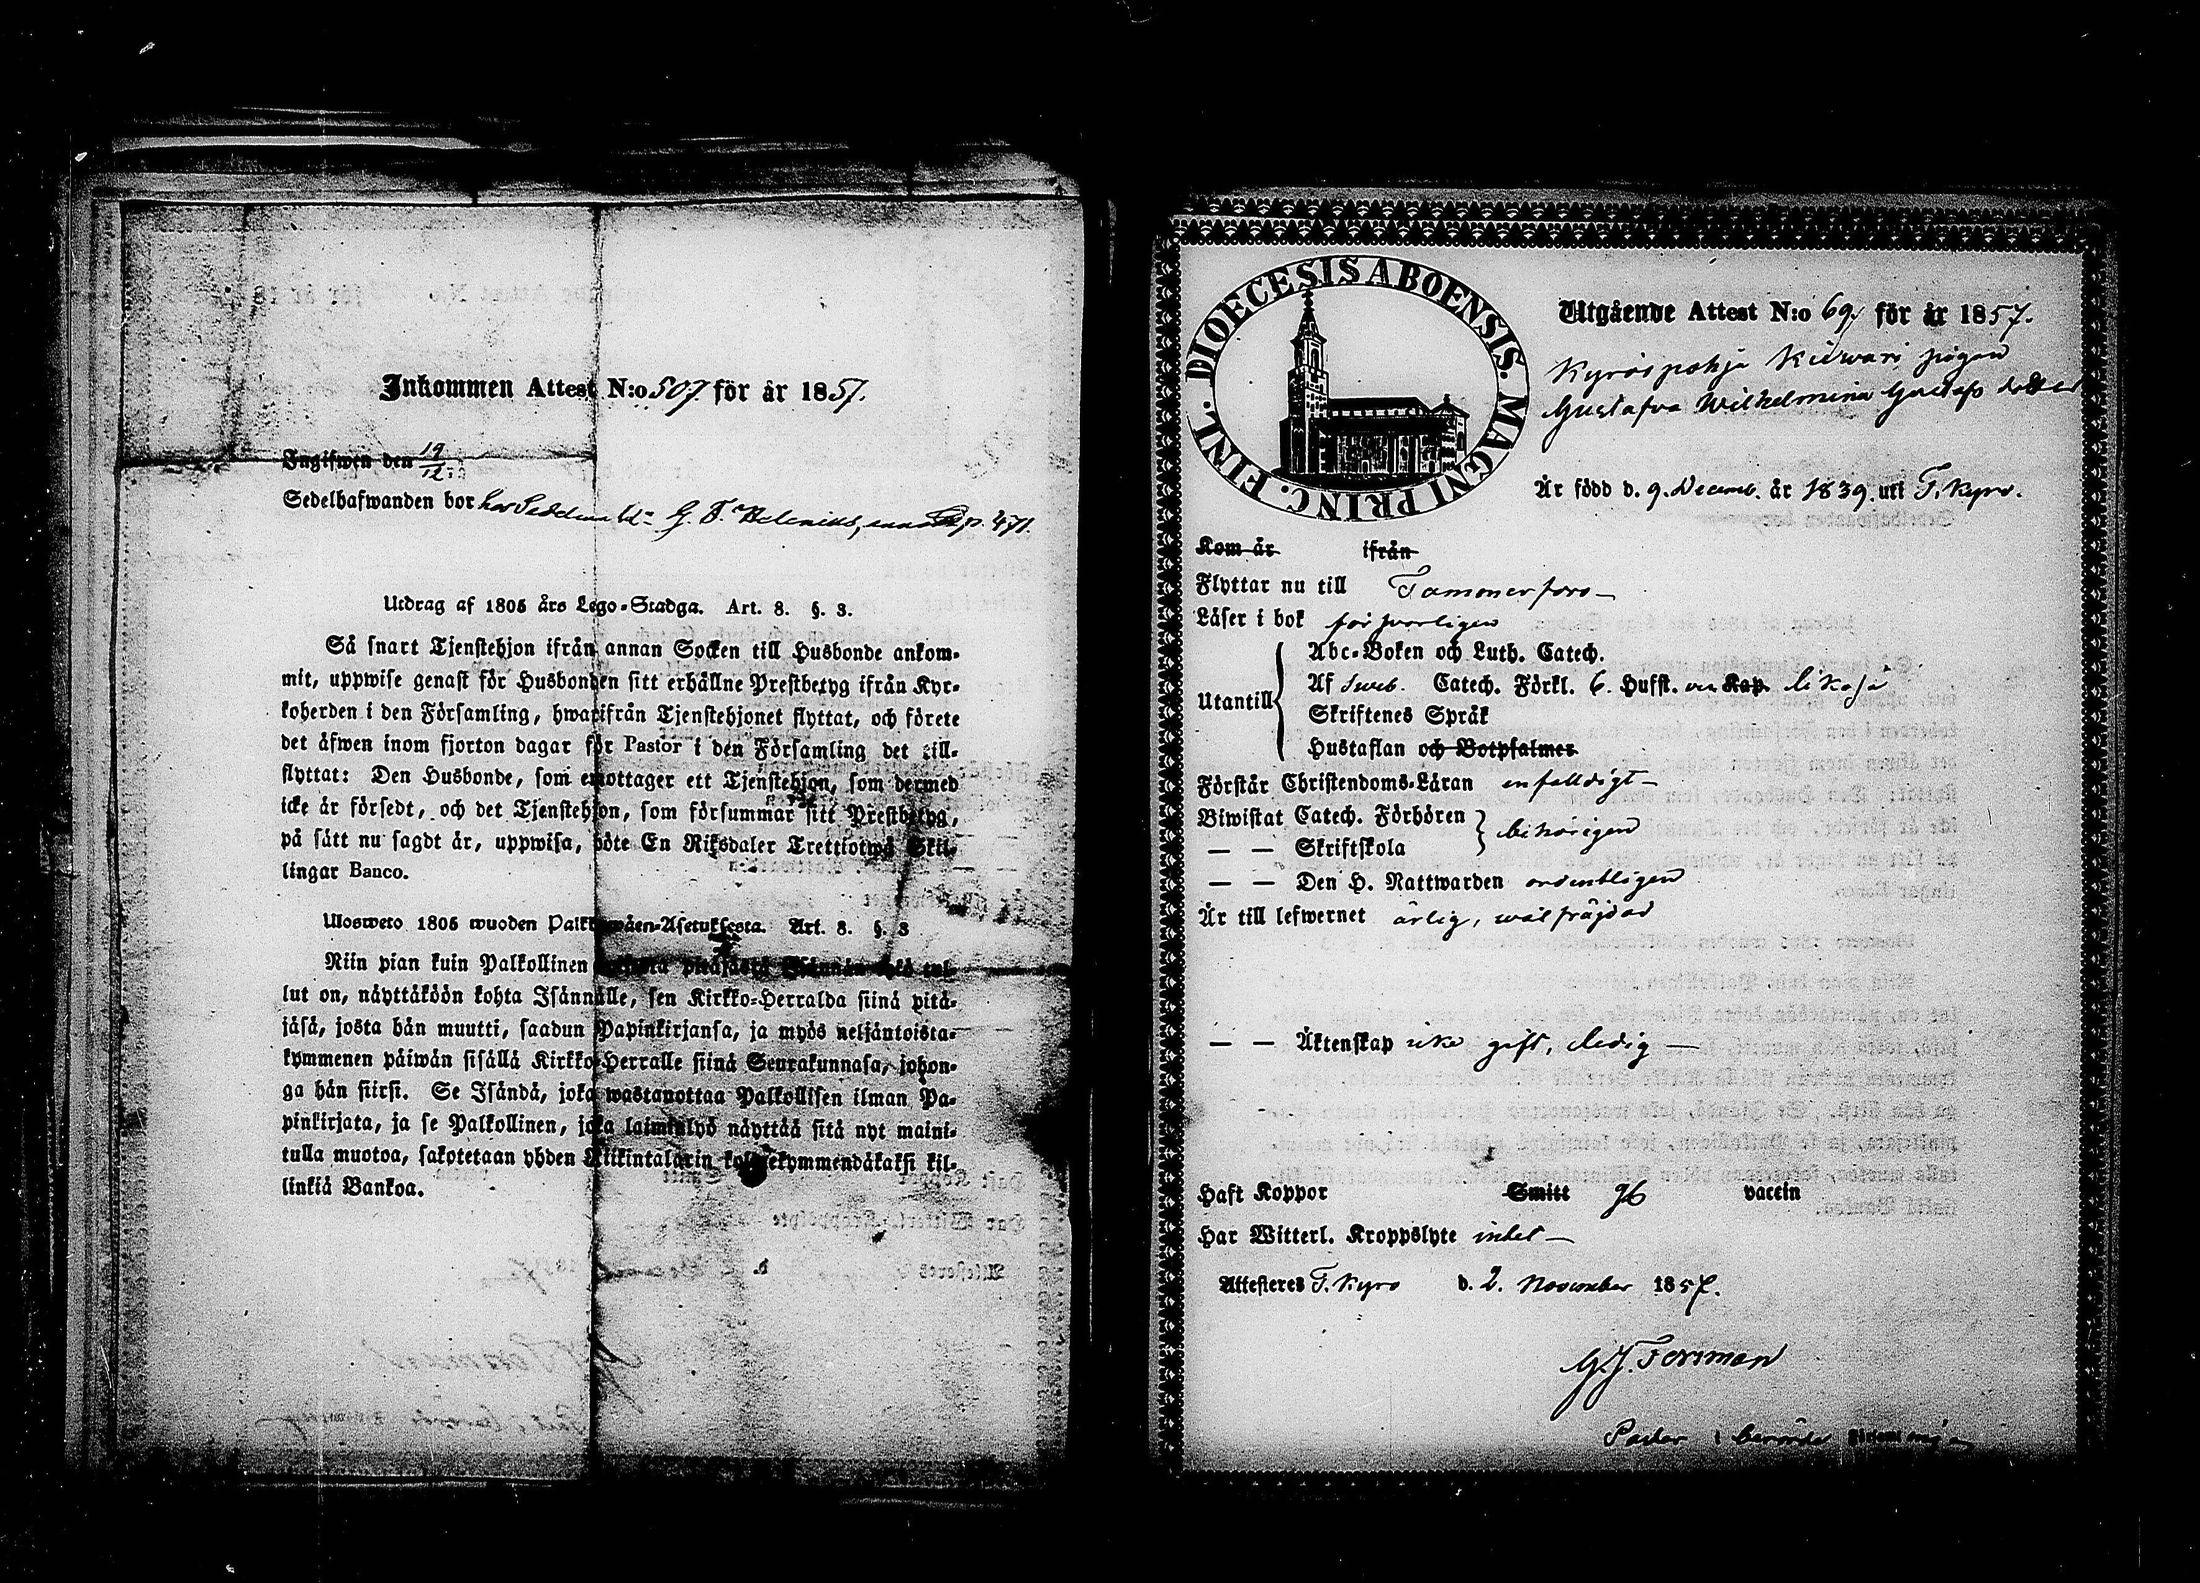 Inkommen Attest N:o 507 för år 1857.
Ingifwen den 19/12.
Sedelhafwanden bor hos G. F. Helenius, p. 471.
Utdrag af 1805 års Lego-Stadga. Art. 8. §. 3.
Så snart Tjenstehjon ifrån annan Socken till Husbonde ankom-
mit, uppwise genast för Husbonden sitt erhållne Prestbetyg ifrån Kyr-
koherden i den Församling, hwarifrån Tjenstehjonet flyttat, och förete
det äfwen inom fjorton dagar för Pastor i den Församling det till-
flyttat: Den Husbonde, som emottager ett Tjenstehjon, som dermed
icke är försedt, och det Tjenstehjon, som försummar sitt Prestbetyg,
på sätt nu sagdt är, uppwisa, böte En Riksdaler Trettiotwå Skil-
lingar Banco.
Ulosweto 1805 wuoden Palkkawäen-Asetuksesta. Art. 8. §. 3
Niin pian kuin Palkollinen pitäjästä Isännän tykö tul-
lut on, näyttäköön kohta Isännälle, sen Kirkko-Herralda siinä pitä-
jäsä, josta hän muutti, saadun Papinkirjansa, ja myös neljäntoista-
kymmenen päiwän sisällä Kirkko-Herralle siinä Seurakunnasa, johon-
ga hän siirsi. Se Isändä, joka wastanottaa Palkollisen ilman Pa-
pinkirjata, ja se Palkollinen, joka laiminlyö näyttää sitä nyt maini-
tulla muotoa, sakotetaan yhden Riikintalarin kolmekymmendäkaksi kil-
linkiä Bankoa.
DIOECESIS ABOENSIS. MAGNI PRINC. FINL.
Utgående Attest N:o 69. för år 1857.
Kyröspohja Kiwari pigan
Gustafva Wilhelmina Gustafsdotter
Är född d. 9. Decemb. år 1839. uti T. Kyro.
Kom år ifrån
Flyttar nu till Tammerfors
Läser i bok förswarligen
Abc-Boken och Luth. Catech.
Utantill Af Sweb. Catech. Förkl. 6. Hufst. Kap. likaså
Skriftenes Språk
Hustaflan och Botpsalmer
Förstår Christendoms-Läran enfalldigt
Biwistat Catech. Förhören behörigen
— — Skriftskola
— — Den H. Nattwarden ordentligen
Är till lefwernet ärlig, wälfräjdad
— — Äktenskap icke gift, ledig —
Haft Koppor Smitt vaccin
Har Witterl. Kroppslyte intet —
Attesteres T. Kyro d. 2. November 1857.
G. J. Forsman
Pastor i